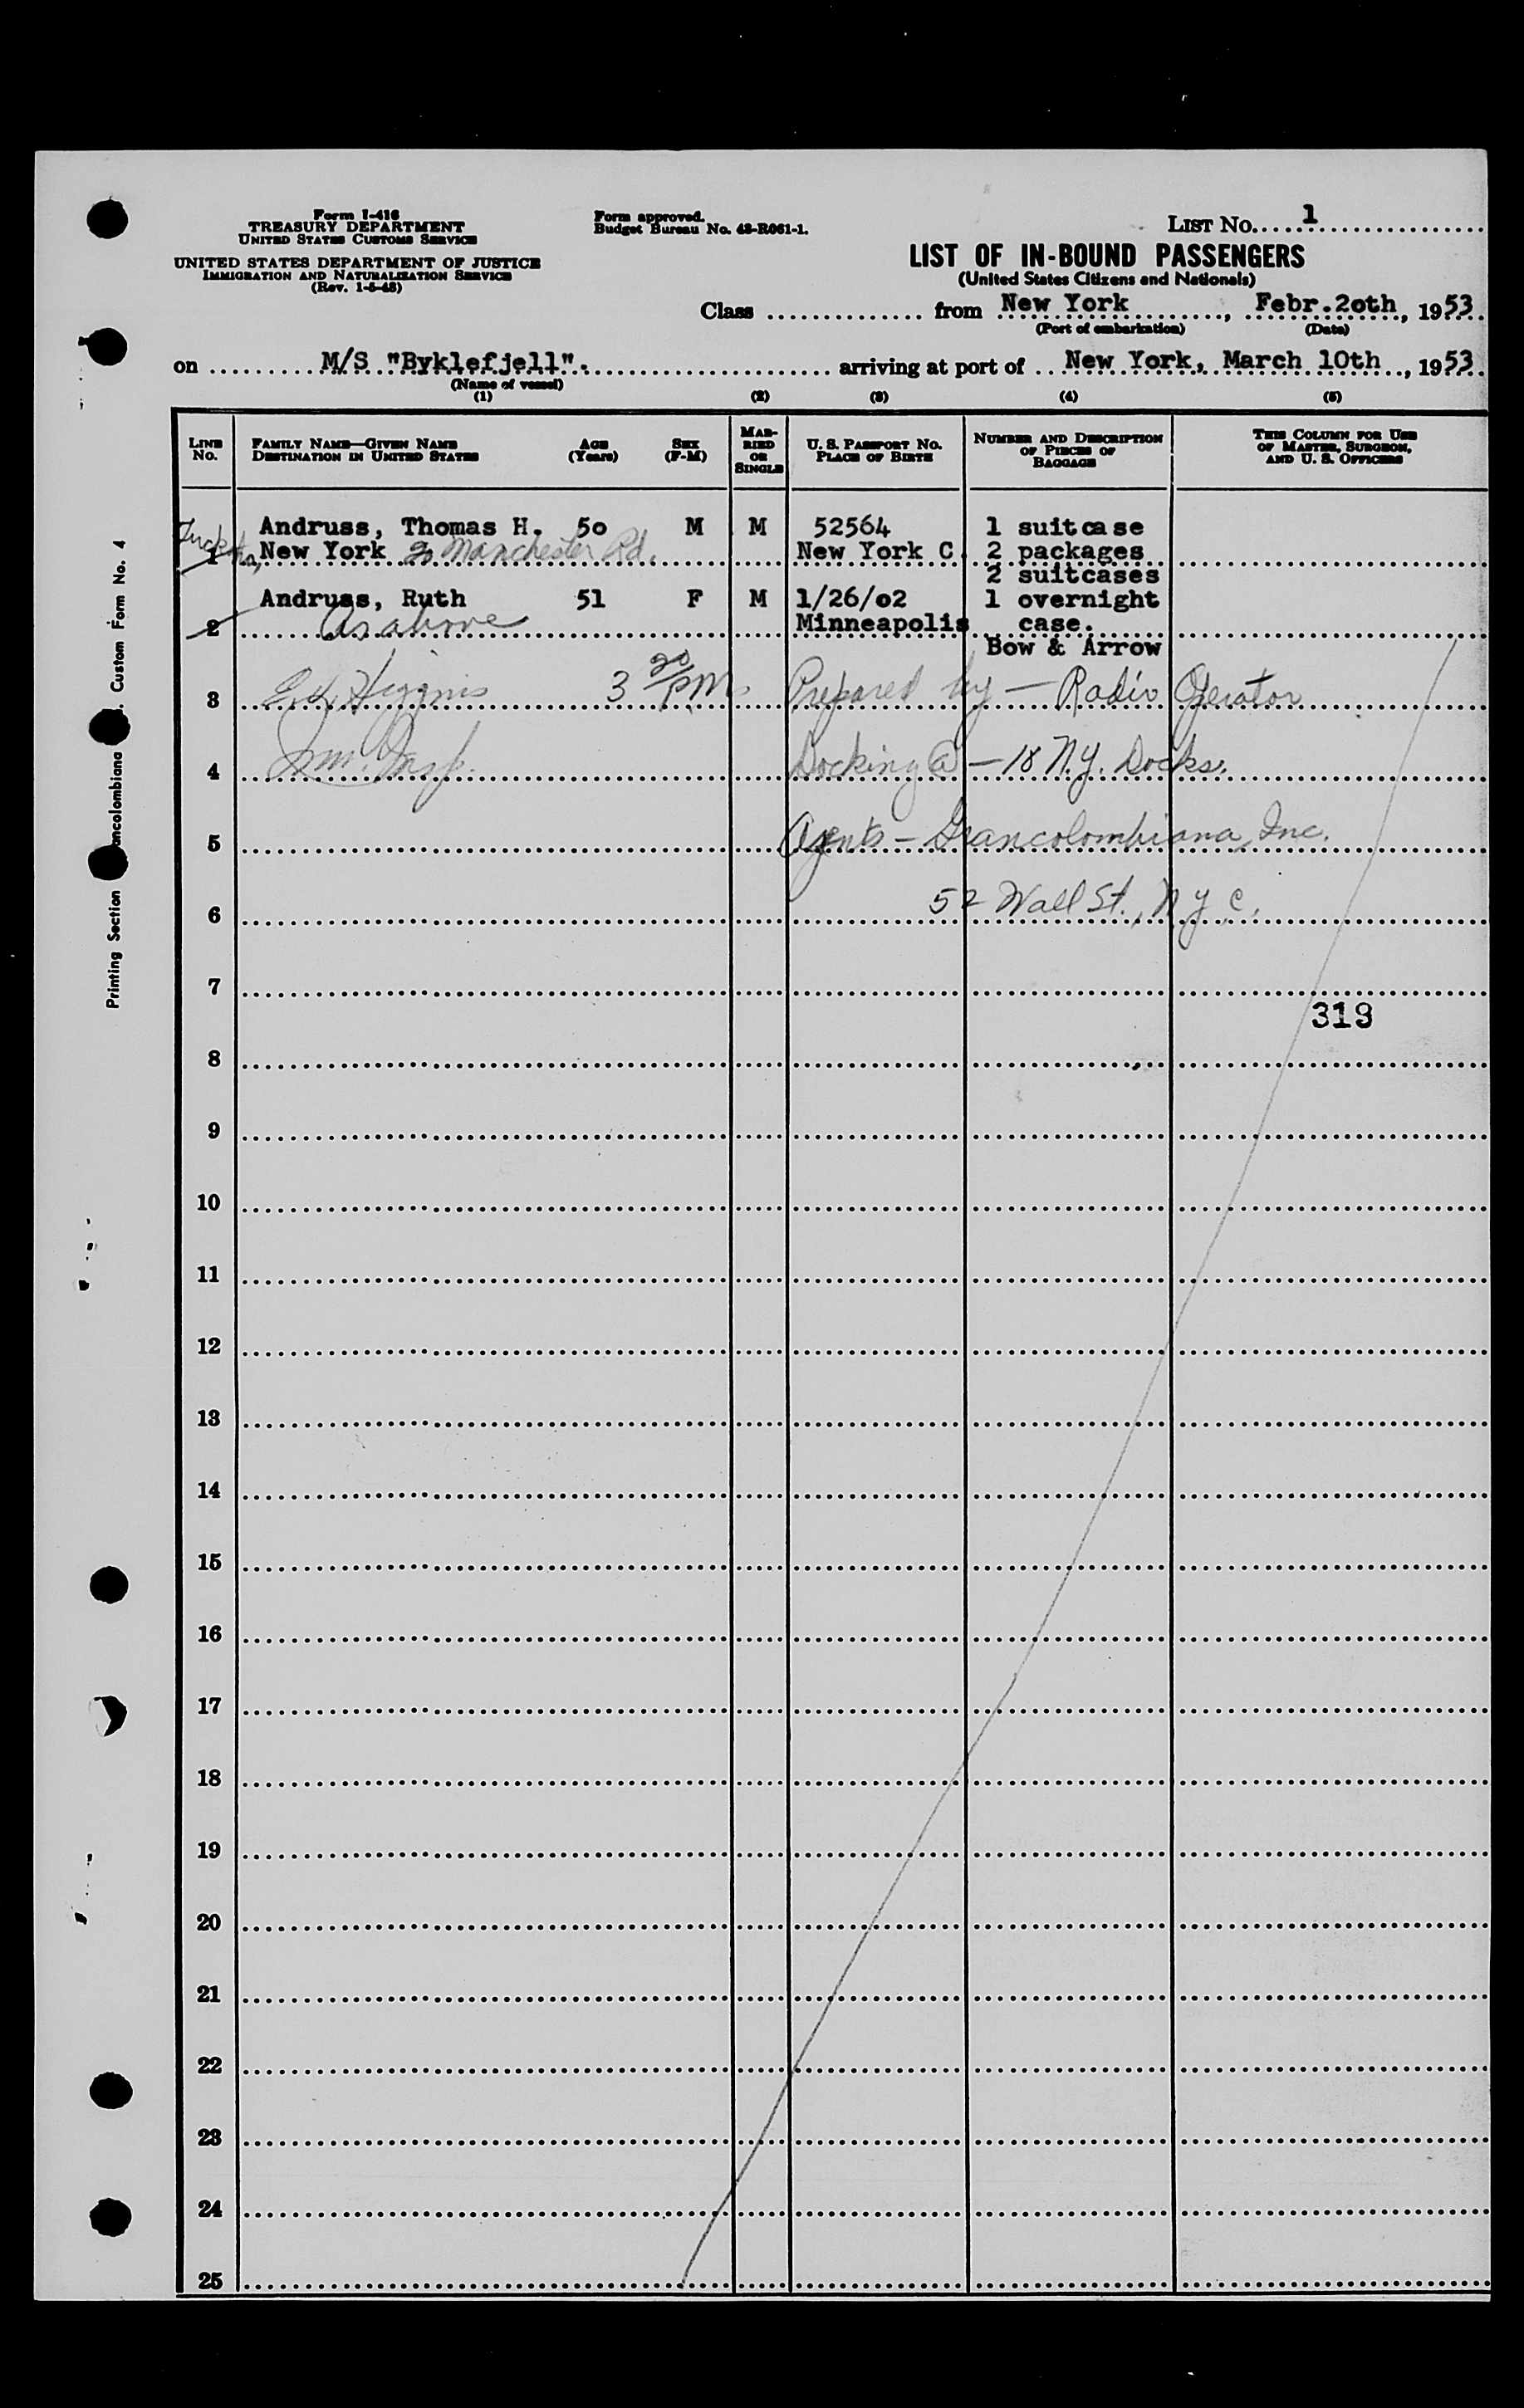 Form I-416
TREASURY DEPARTMENT
UNITED STATES CUSTOMS SERVICE
UNITED STATES DEPARTMENT OF JUSTICE
IMMIGRATION AND NATURALIZATION SERVICE
(Rev. 1-5-48)
Form approved.
Budget Bureau No. 43-R061-1.
LIST No. 1
LIST OF IN-BOUND PASSENGERS
(United States Citizens and Nationals)
Class from New York, Febr.2oth, 1953
(Port of embarkation) (Date)
on M/S "Byklefjell". arriving at port of New York, March 10th, 1953
(Name of vessel)
(1) (2) (3) (4) (5)
LINE No. FAMILY NAME—GIVEN NAME DESTINATION IN UNITED STATES AGE (Years) SEX (F-M) MARRIED OR SINGLE U. S. PASSPORT NO. PLACE OF BIRTH NUMBER AND DESCRIPTION OF PIECES OF BAGGAGE THIS COLUMN FOR USE OF MASTER, SURGEON, AND U. S. OFFICERS
Andruss, Thomas H. 5o M M 52564 1 suitcase
1 New York 20 Manchester Rd. New York C. 2 packages
2 suitcases
Andruss, Ruth 51 F M 1/26/o2 1 overnight
2 As above Minneapolis case.
Bow & Arrow
3 Higgins 3 20 PM Prepared by — Radio Operator
4 Imm. Insp. Docking @ — 18 N.Y. Docks.
5 Agents — Grancolombiana, Inc.
6 52 Wall St., N.Y.C.
7
319
8
9
10
11
12
13
14
15
16
17
18
19
20
21
22
23
24
25
Printing Section ancolombiana Custom Form No. 4